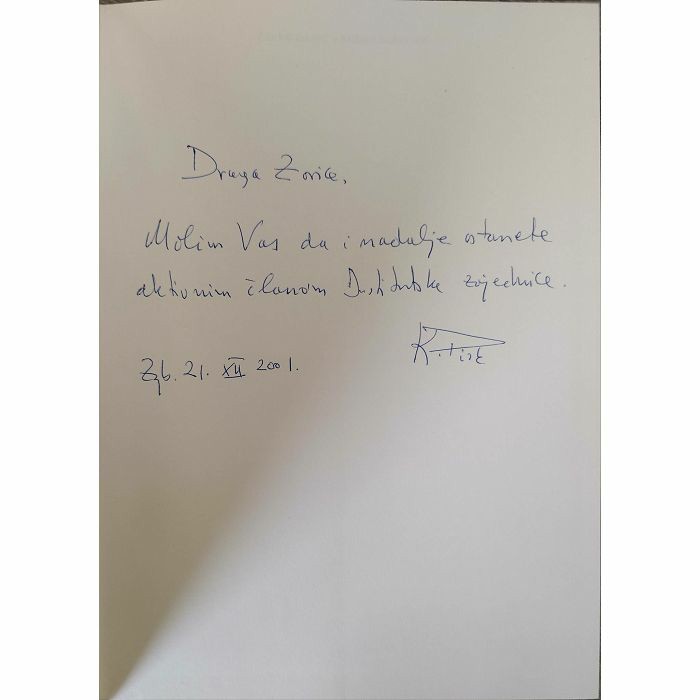 Draga Zorice,
Molim Vas da i nadalje ostanete
aktivnim članom Institutske zajednice.
Zgb. 21. XII 2001.